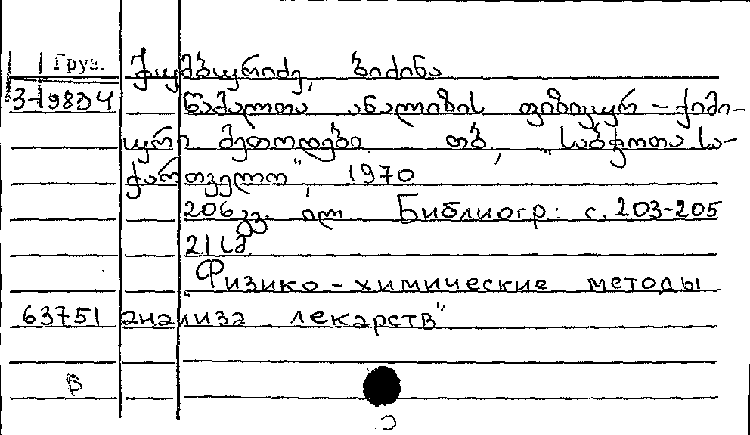 Груз.
ჭუმბურიძე, ბიძინა
3-19834
წამალთა ანალიზის ფიზიკურ-ქიმი-
ური მეთოდები. თბ., "საბჭოთა სა-
ქართველო", 1970
206 გვ. ილ. Библиогр.: с. 203-205
21 სმ
"Физико-химические методы
63751 анализа лекарств"
В